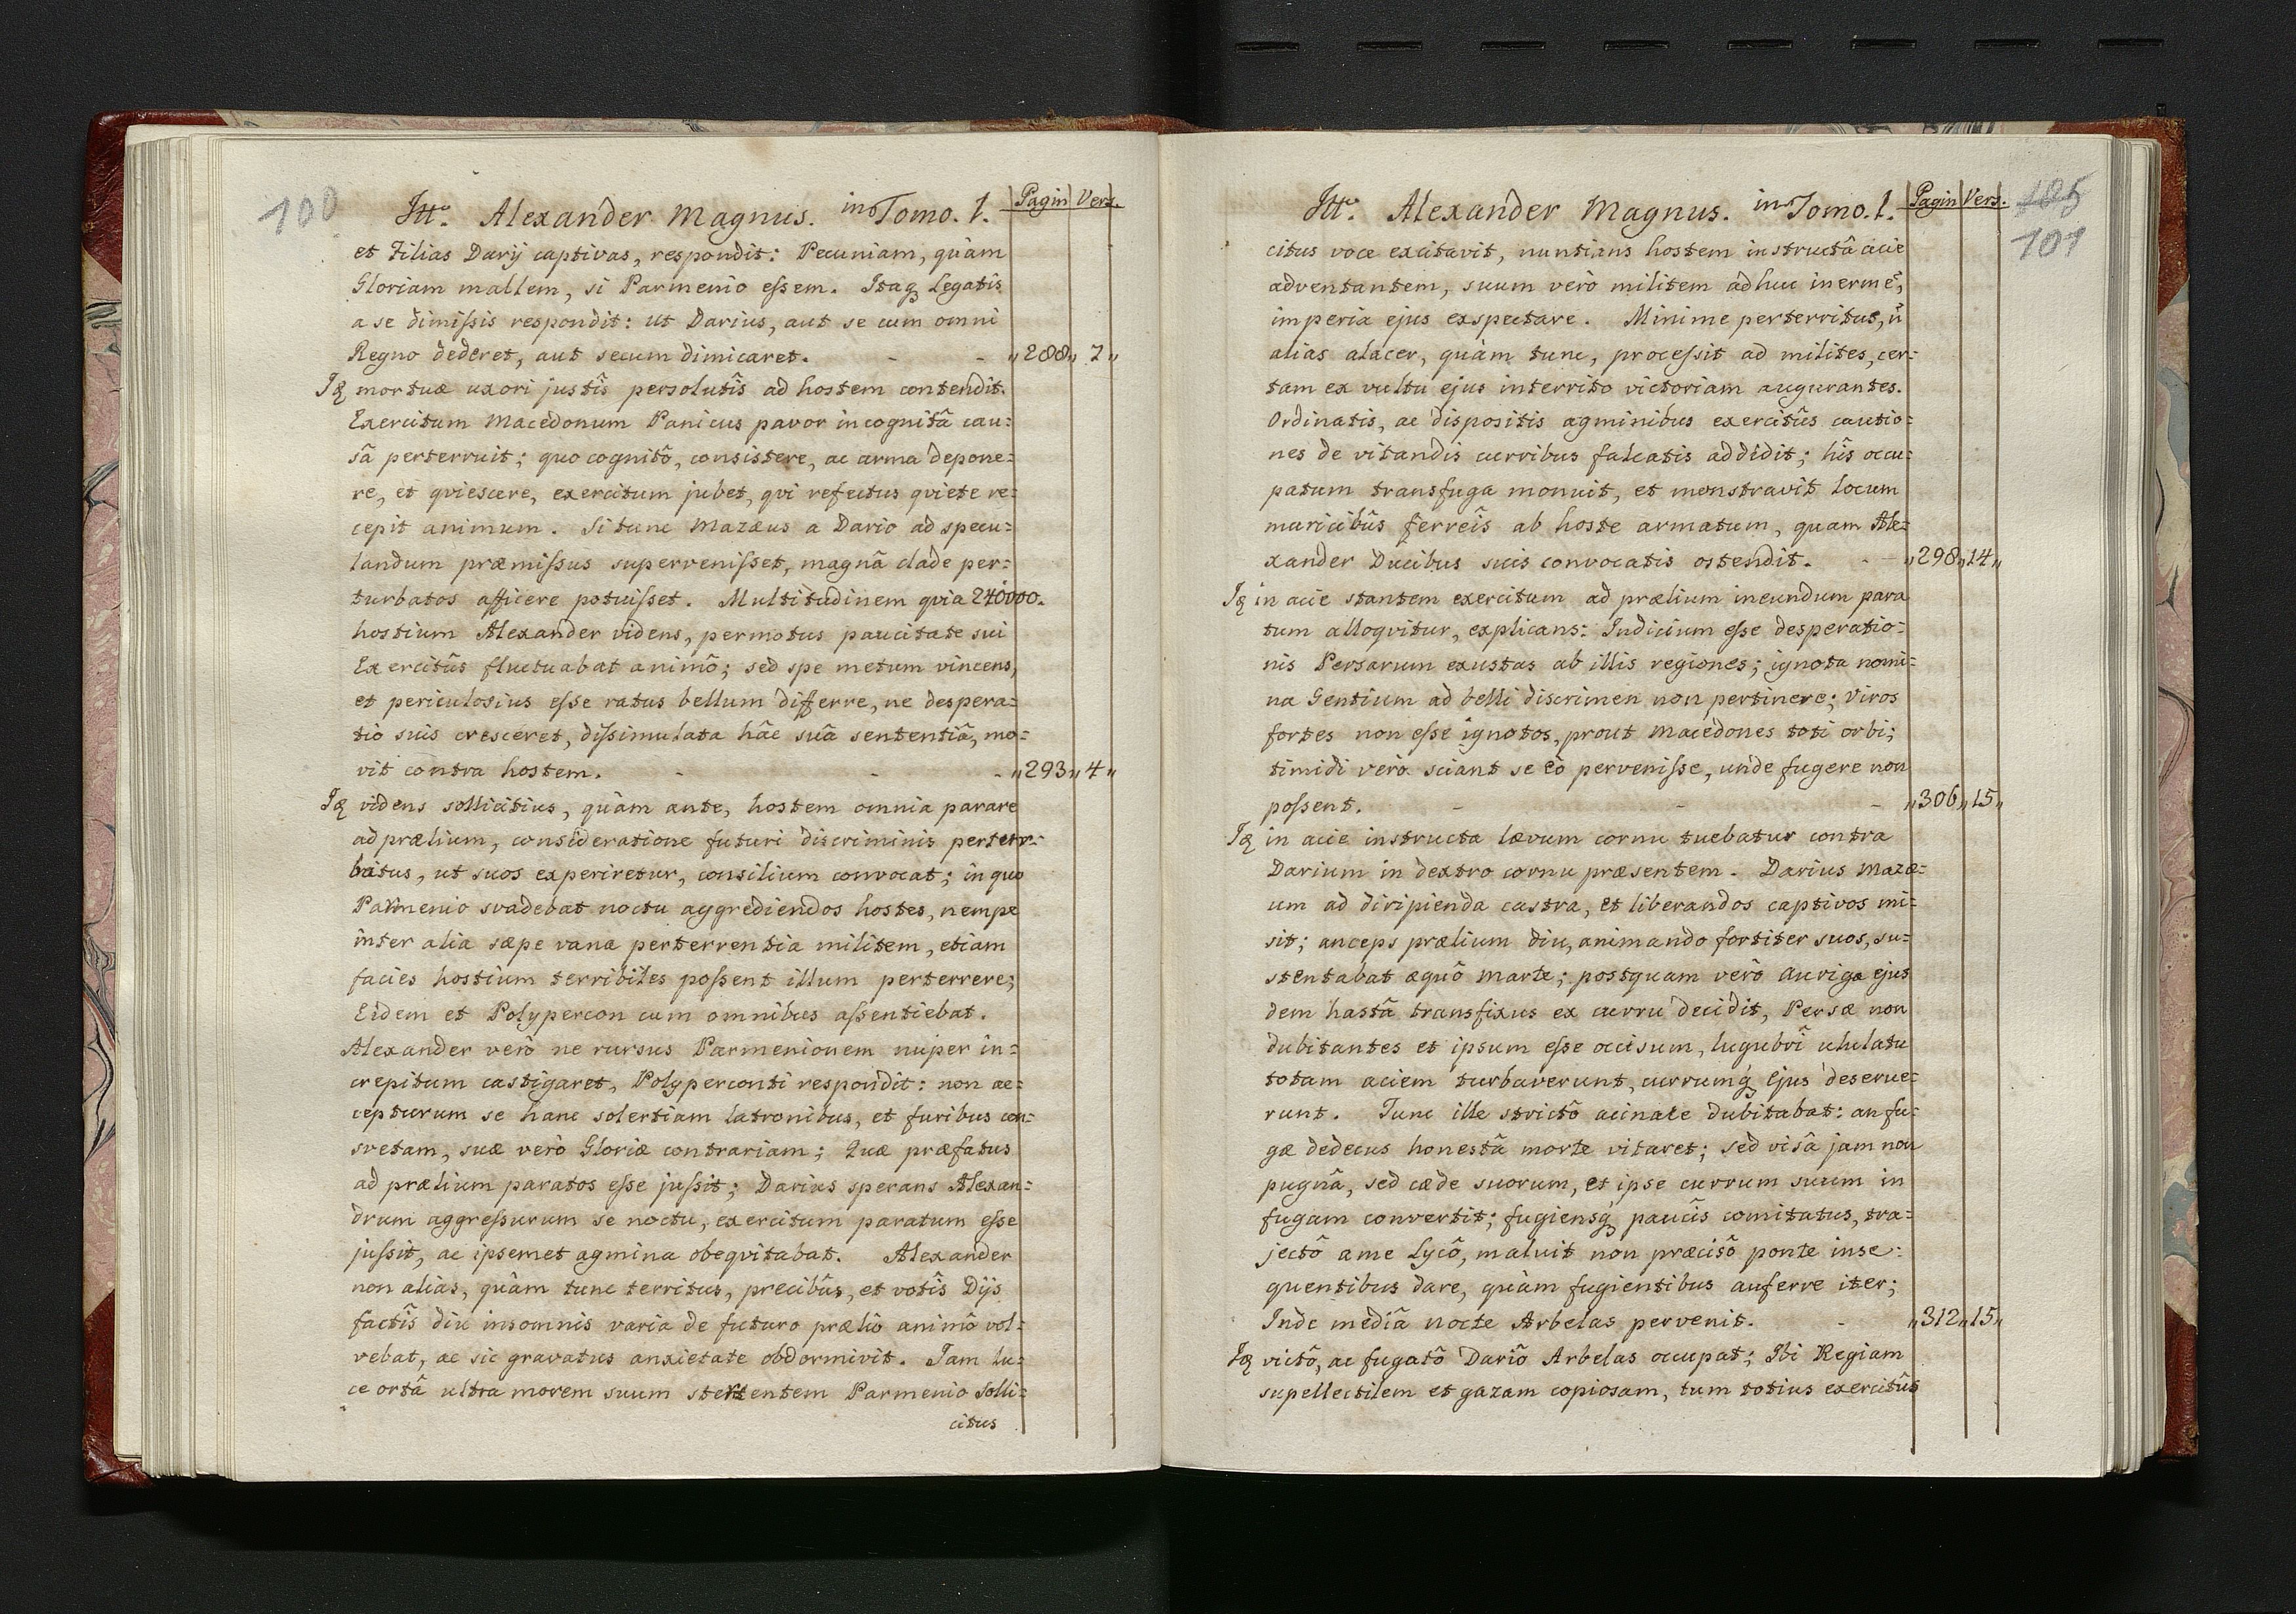 100
Itt. Alexander Magnus. in Tomo. I. Pagin Vers.
et Filias Darij captivas, respondit: Pecuniam, quàm
Gloriam mallem, si Parmenio eſsem. Itaq Legatis
a se dimiſsis respondit: ut Darius, aut se cum omni
Regno dederet, aut secum dimicaret. - - „288„ 7„
Iq mortuæ uxori justîs persolutîs ad hostem contendit.
Exercitum Macedonum Panicus pavor incognitâ cau:
sâ perterruit; quo cognitô, consistere, ac arma depone:
re, et qviescere, exercitum jubet, qvi refectus qviete re:
cepit animum. Si tunc Mazæus a Dario ad specu:
landum præmiſsus superveniſset, magnâ clade per:
turbatos afficere potuiſset. Multitudinem qvia 240000.
hostium Alexander videns, permotus paucitate sui
Exercitûs fluctuabat animô; sed spe metum vincens,
et periculosius eſse ratus bellum differre, ne despera:
tio suis cresceret, diſsimulata hâc suâ sententiâ, mo:
vit contra hostem. - - - „293„4„
Iq videns sollicitius, quàm ante, hostem omnia parare
ad prælium, consideratione futuri discriminis pertur:
batus, ut suos experiretur, consilium convocat; in quo
Parmenio svadebat noctu aggrediendos hostes, nempe
inter alia sæpe vana perterrentia militem, etiam
facies hostium terribiles poſsent illum perterrere;
Eidem et Polypercon cum omnibus aſsentiebat.
Alexander verò ne rursus Parmenionem nuper in:
crepitum castigaret, Polyperconti respondit: non ac:
cepturum se hanc solertiam latronibus, et furibus con:
svetam, suæ verò Gloriæ contrariam; Quæ præfatus
ad prælium paratos eſse juſsit; Darius sperans Alexan:
drum aggreſsurum se noctu, exercitum paratum eſse
juſsit, ac ipsemet agmina obeqvitabat. Alexander
non alias, quàm tunc territus, precibûs, et votîs Dijs
factîs diu insomnis varia de futuro præliô animô vol:
vebat, ac sic gravatus anxietate obdormivit. Jam lu:
ce ortâ ultra morem suum stertentem Parmenio solli:
citus
Itt. Alexander Magnus. in Tomo. I. Pagin Vers. 105
101
citus voce excitavit, nuntians hostem instructâ acie
adventantem, suum verò militem adhuc inermẽ,
imperia ejus exspectare. Minime perterritus, ñ
alias alacer, quàm tunc, proceſsit ad milites, cer:
tam ex vultu ejus interrito victoriam augurantes.
Ordinatis, ac dispositis agminibus exercitûs cautio:
nes de vitandis curribus falcatis addidit; hîs occu:
patum transfuga monuit, et monstravit locum
muricibûs ferreîs ab hoste armatum, quam Ale:
xander Ducibus suis convocatis ostendit. - - „298„14„
Iq in acie stantem exercitum ad prælium ineundum para
tum alloqvitur, explicans: Indicium eſse desperatio:
nis Persarum exustas ab illis regiones; ignota nomi:
na Gentium ad belli discrimen non pertinere; Viros
fortes non eſse ignotos, prout Macedones toti orbi;
timidi verò sciant se eò perveniſse, unde fugere non
poſsent. - - - „306„15„
Iq in acie instructa lævum cornu tuebatur contra
Darium in dextro cornu præsentem. Darius Mazæ:
um ad diripienda castra, et liberandos captivos mi:
sit; anceps prælium diu, animando fortiter suos, su:
stentabat æquô Marte; postquam verò auriga ejus
dem hastâ transfixus ex curru decidit, Persæ non
dubitantes et ipsum eſse occisum, lugubrî ululatu
totam aciem turbaverunt, currumq ejus deserue:
runt. Tunc ille strictô acinace dubitabat: an fu:
gæ dedecus honestâ morte vitaret; sed visâ jam non
pugnâ, sed cæde suorum, et ipse currum suum in
fugam convertit; fugiensq paucîs comitatus, tra:
jectô ame Lycô, maluit non præcisô ponte inse:
quentibus dare, quàm fugientibus auferre iter;
Inde mediâ nocte Arbelas pervenit. - „312„15„
Iq victô, ac fugatô Dariô Arbelas occupat; Ibi Regiam
supellectilem et gazam copiosam, tum totius exercitûs